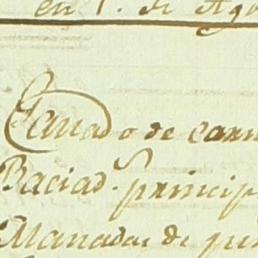 en 1. de Ago
Ganado de Carn
Baciad. princip
Manadas de